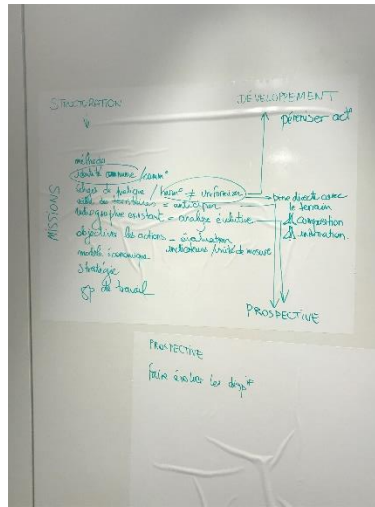 STRUCTURATION
DÉVELOPPEMENT
pérenniser act°
MISSIONS
méthode
identité commune / comm°
de pratique / harm° ≠ uniformiser
= anticiper
existant = analyse évolutive
objectiver les actions = évaluation
indicateurs / unité de mesure
modèle économique
stratégie
gp de travail
directe avec
le terrain
⚠ comparaison
⚠
PROSPECTIVE
PROSPECTIVE
faire évoluer les disp^ifs